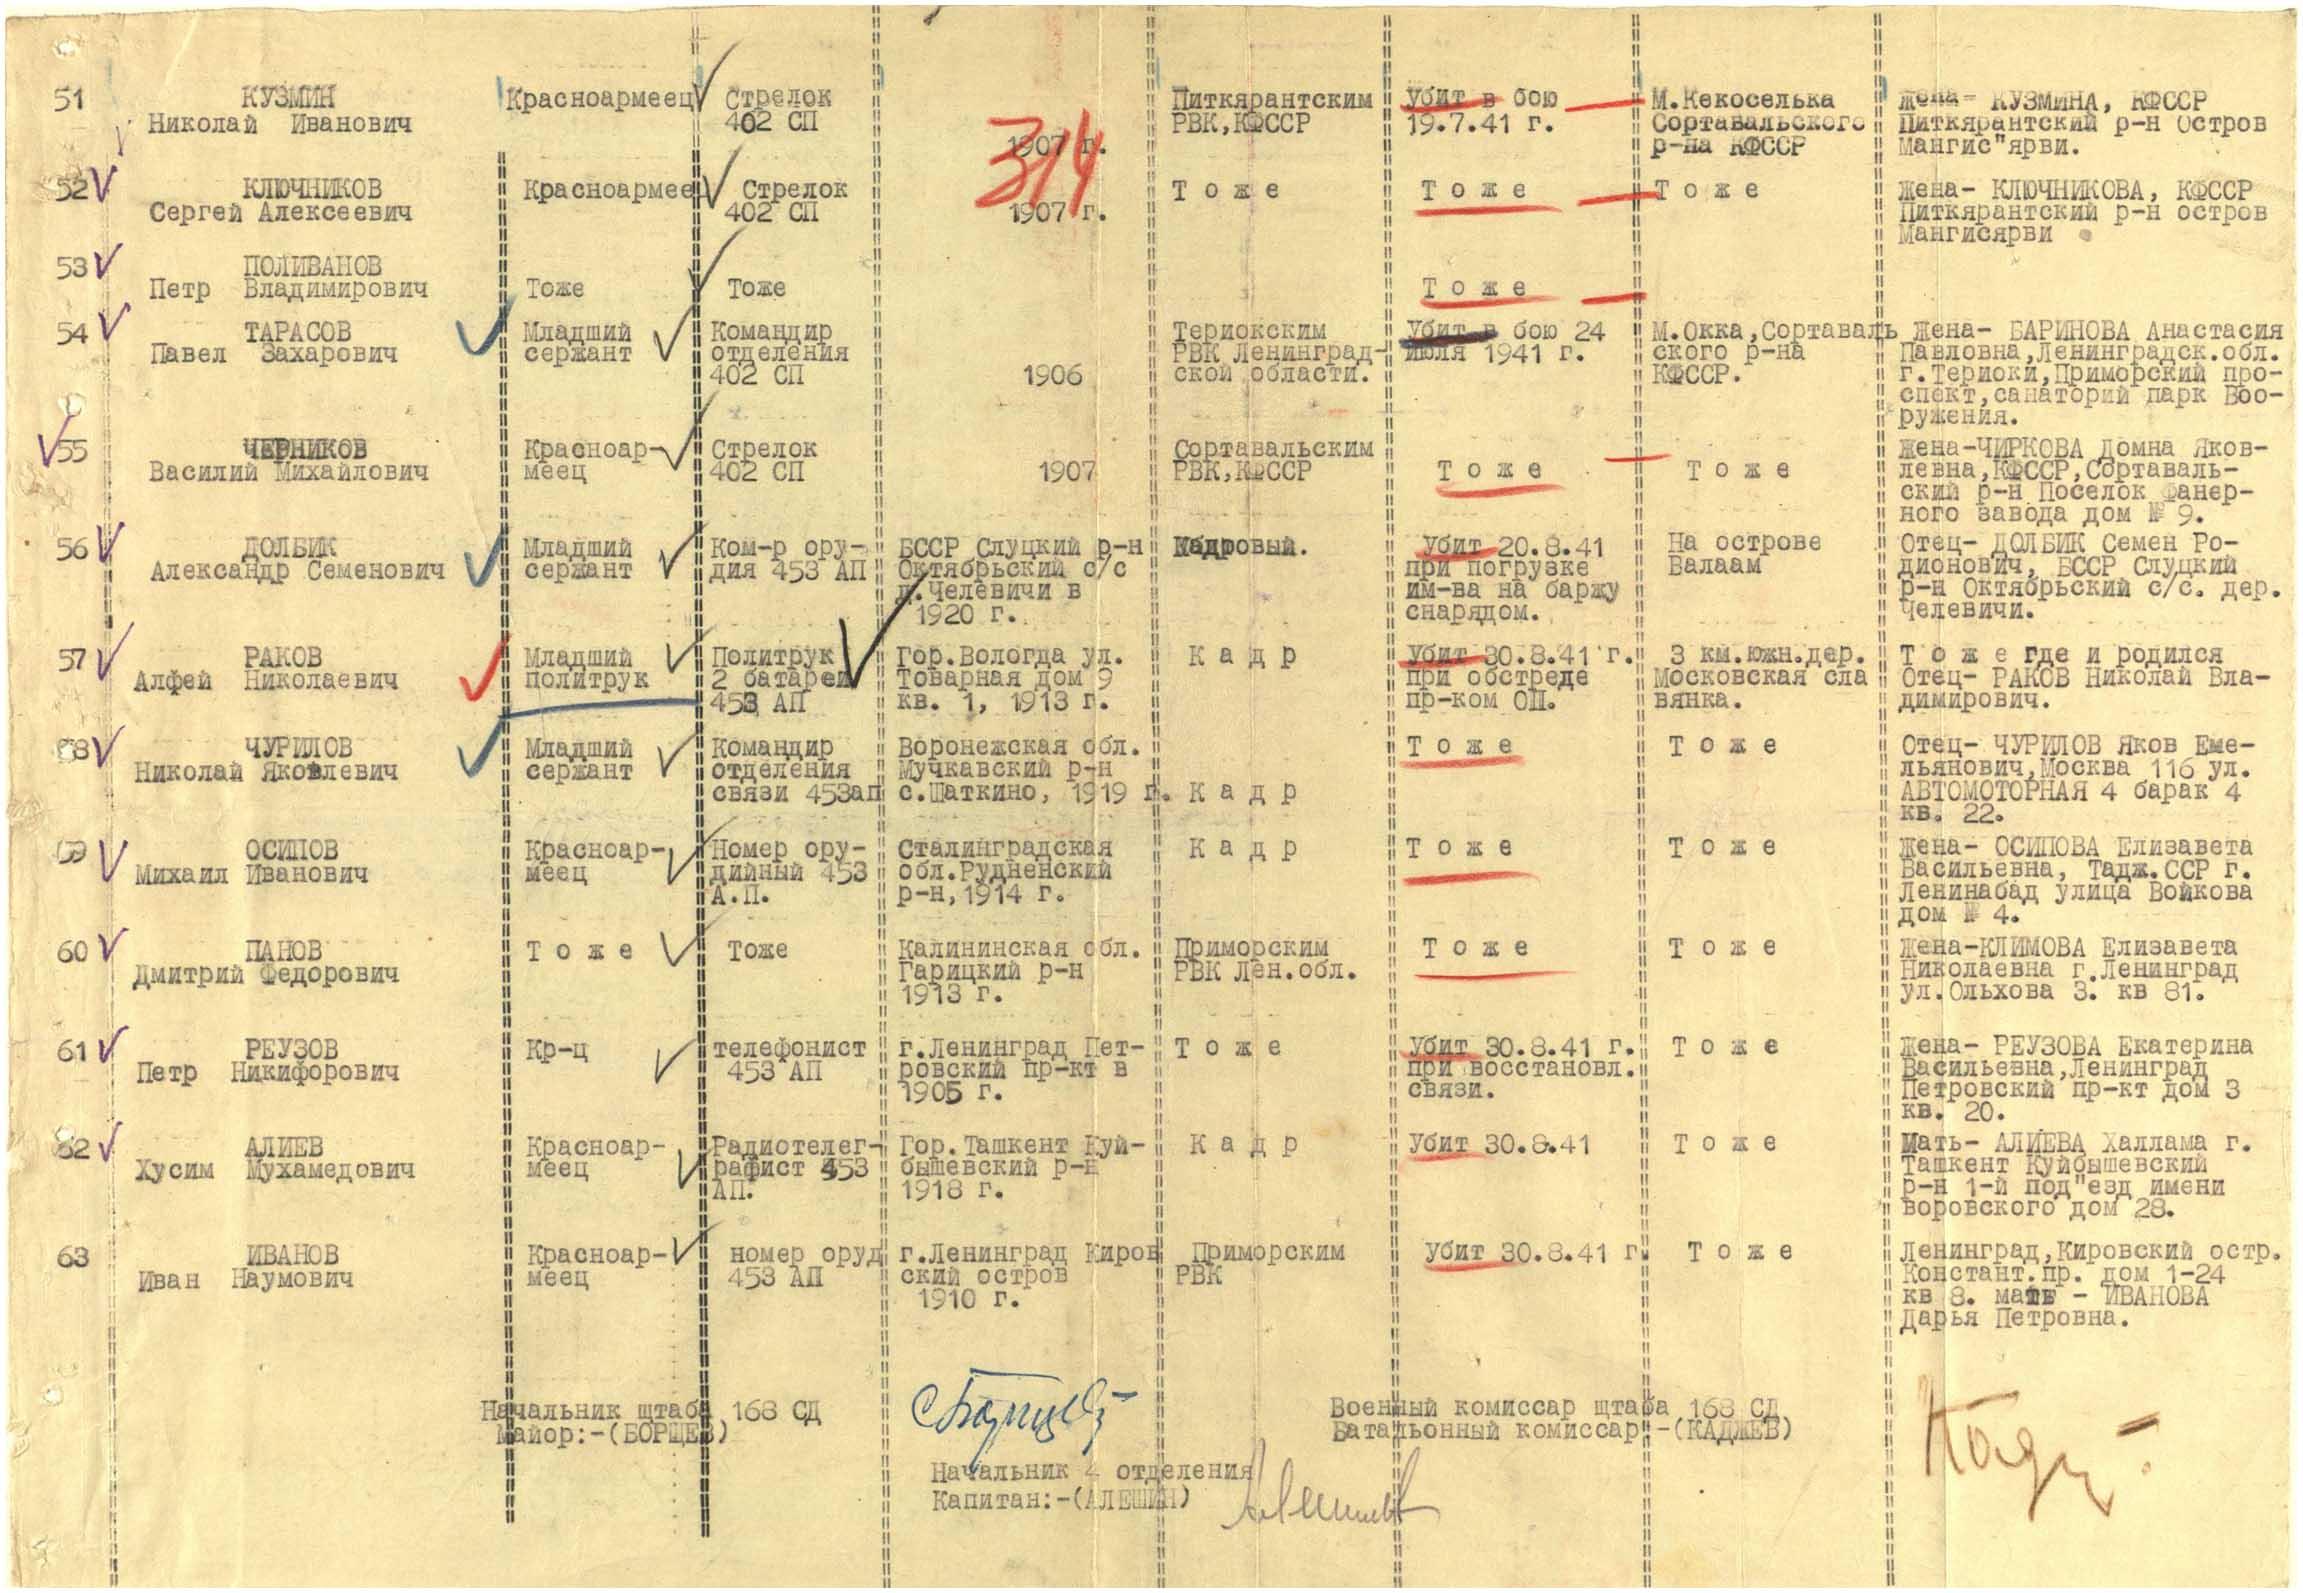 51
КУЗМИН
Николай Иванович
Красноармеец
Стрелок
402 СП
1907 г.
Питкярантским
РВК,КФССР
Убит в бою
19.7.41 г.
М.Кекоселька
Сортавальского
р-на КФССР
Жена- КУЗМИНА, КФССР
Питкярантский р-н Остров
Мангис"ярви.
314
52
КЛЮЧНИКОВ
Сергей Алексеевич
Красноармеец
Стрелок
402 СП
1907 г.
Тоже
Тоже
Тоже
Жена- КЛЮЧНИКОВА, КФССР
Питкярантский р-н остров
Мангисярви
53
ПОЛИВАНОВ
Петр Владимирович
Тоже
Тоже
Тоже
54
ТАРАСОВ
Павел Захарович
Младший
сержант
Командир
отделения
402 СП
1906
Териокским
РВК Ленинград-
ской области.
Убит в бою 24
июля 1941 г.
М.Окка,Сортаваль
ского р-на
КФССР.
Жена- БАРИНОВА Анастасия
Павловна,Ленинградск.обл.
г.Териоки,Приморский про-
спект,санаторий парк Воо-
ружения.
55
ЧЕРНИКОВ
Василий Михайлович
Красноар-
меец
Стрелок
402 СП
1907
Сортавальским
РВК,КФССР
Тоже
Тоже
Жена-ЧИРКОВА Домна Яков-
левна,КФССР,Сортаваль-
ский р-н Поселок Фанер-
ного завода дом № 9.
56
ДОЛБИК
Александр Семенович
Младший
сержант
Ком-р ору-
дия 453 АП
БССР Слуцкий р-н
Октябрьский с/с
д.Челевичи в
1920 г.
Кадровый.
Убит 20.8.41
при погрузке
им-ва на баржу
снарядом.
На острове
Валаам
Отец- ДОЛБИК Семен Ро-
дионович, БССР Слуцкий
р-н Октябрьский с/с. дер.
Челевичи.
57
РАКОВ
Алфей Николаевич
Младший
политрук
Политрук
2 батареи
453 АП
Гор.Вологда ул.
Товарная дом 9
кв. 1, 1913 г.
Кадр
Убит 30.8.41 г.
при обстреде
пр-ком ОП.
3 км.южн.дер.
Московская сла
вянка.
Тоже где и родился
Отец- РАКОВ Николай Вла-
димирович.
58
ЧУРИЛОВ
Николай Яковлевич
Младший
сержант
Командир
отделения
связи 453ап
Воронежская обл.
Мучкавский р-н
с.Шаткино, 1919 г.
Кадр
Тоже
Тоже
Отец- ЧУРИЛОВ Яков Еме-
льянович,Москва 116 ул.
АВТОМОТОРНАЯ 4 барак 4
кв. 22.
59
ОСИПОВ
Михаил Иванович
Красноар-
меец
Номер ору-
дийный 453
А.П.
Сталинградская
обл.Рудненский
р-н,1914 г.
Кадр
Тоже
Тоже
Жена- ОСИПОВА Елизавета
Васильевна, Тадж.ССР г.
Ленинабад улица Войкова
дом № 4.
60
ПАНОВ
Дмитрий Федорович
Тоже
Тоже
Калининская обл.
Гарицкий р-н
1913 г.
Приморским
РВК Лен.обл.
Тоже
Тоже
Жена-КЛИМОВА Елизавета
Николаевна г.Ленинград
ул.Ольхова 3. кв 81.
61
РЕУЗОВ
Петр Никифорович
Кр-ц
телефонист
453 АП
г.Ленинград Пет-
ровский пр-кт в
1905 г.
Тоже
Убит 30.8.41 г.
при восстановл.
связи.
Тоже
Жена- РЕУЗОВА Екатерина
Васильевна,Ленинград
Петровский пр-кт дом 3
кв. 20.
62
АЛИЕВ
Хусим Мухамедович
Красноар-
меец
Радиотелег-
рафист 453
АП.
Гор.Ташкент Куй-
бышевский р-н
1918 г.
Кадр
Убит 30.8.41
Тоже
Мать- АЛИЕВА Халлама г.
Ташкент Куйбышевский
р-н 1-й под"езд имени
воровского дом 28.
63
ИВАНОВ
Иван Наумович
Красноар-
меец
номер оруд
453 АП
г.Ленинград Киров
ский остров
1910 г.
Приморским
РВК
Убит 30.8.41 г.
Тоже
Ленинград,Кировский остр.
Констант.пр. дом 1-24
кв 8. мать - ИВАНОВА
Дарья Петровна.
Начальник штаба 168 СД
Майор:-(БОРЩЕВ)
Военный комиссар штаба 168 СД
Батальонный комиссар:-(КАДЖЕВ)
Начальник 4 отделения
Капитан:-(АЛЕШИН)